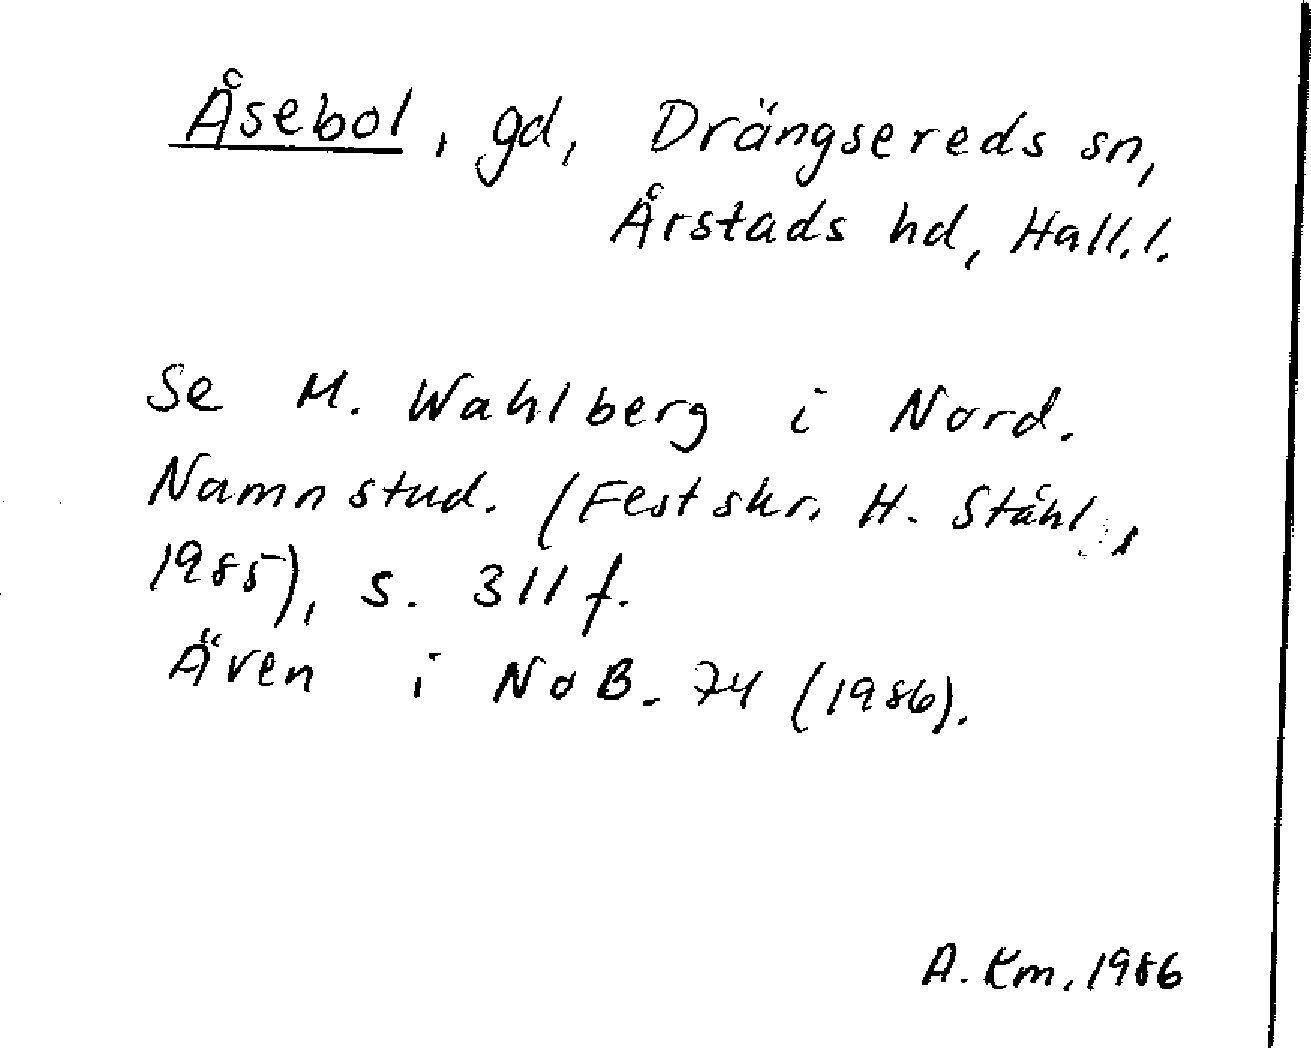 Åsebol, gd, Drängsereds sn,
Årstads hd, Hall.l.
Se M. Wahlberg i Nord.
Namnstud. (Festskr. H. Ståhl,
1985), s. 311 f.
Även i NoB. 74 (1986).
A. Km. 1986